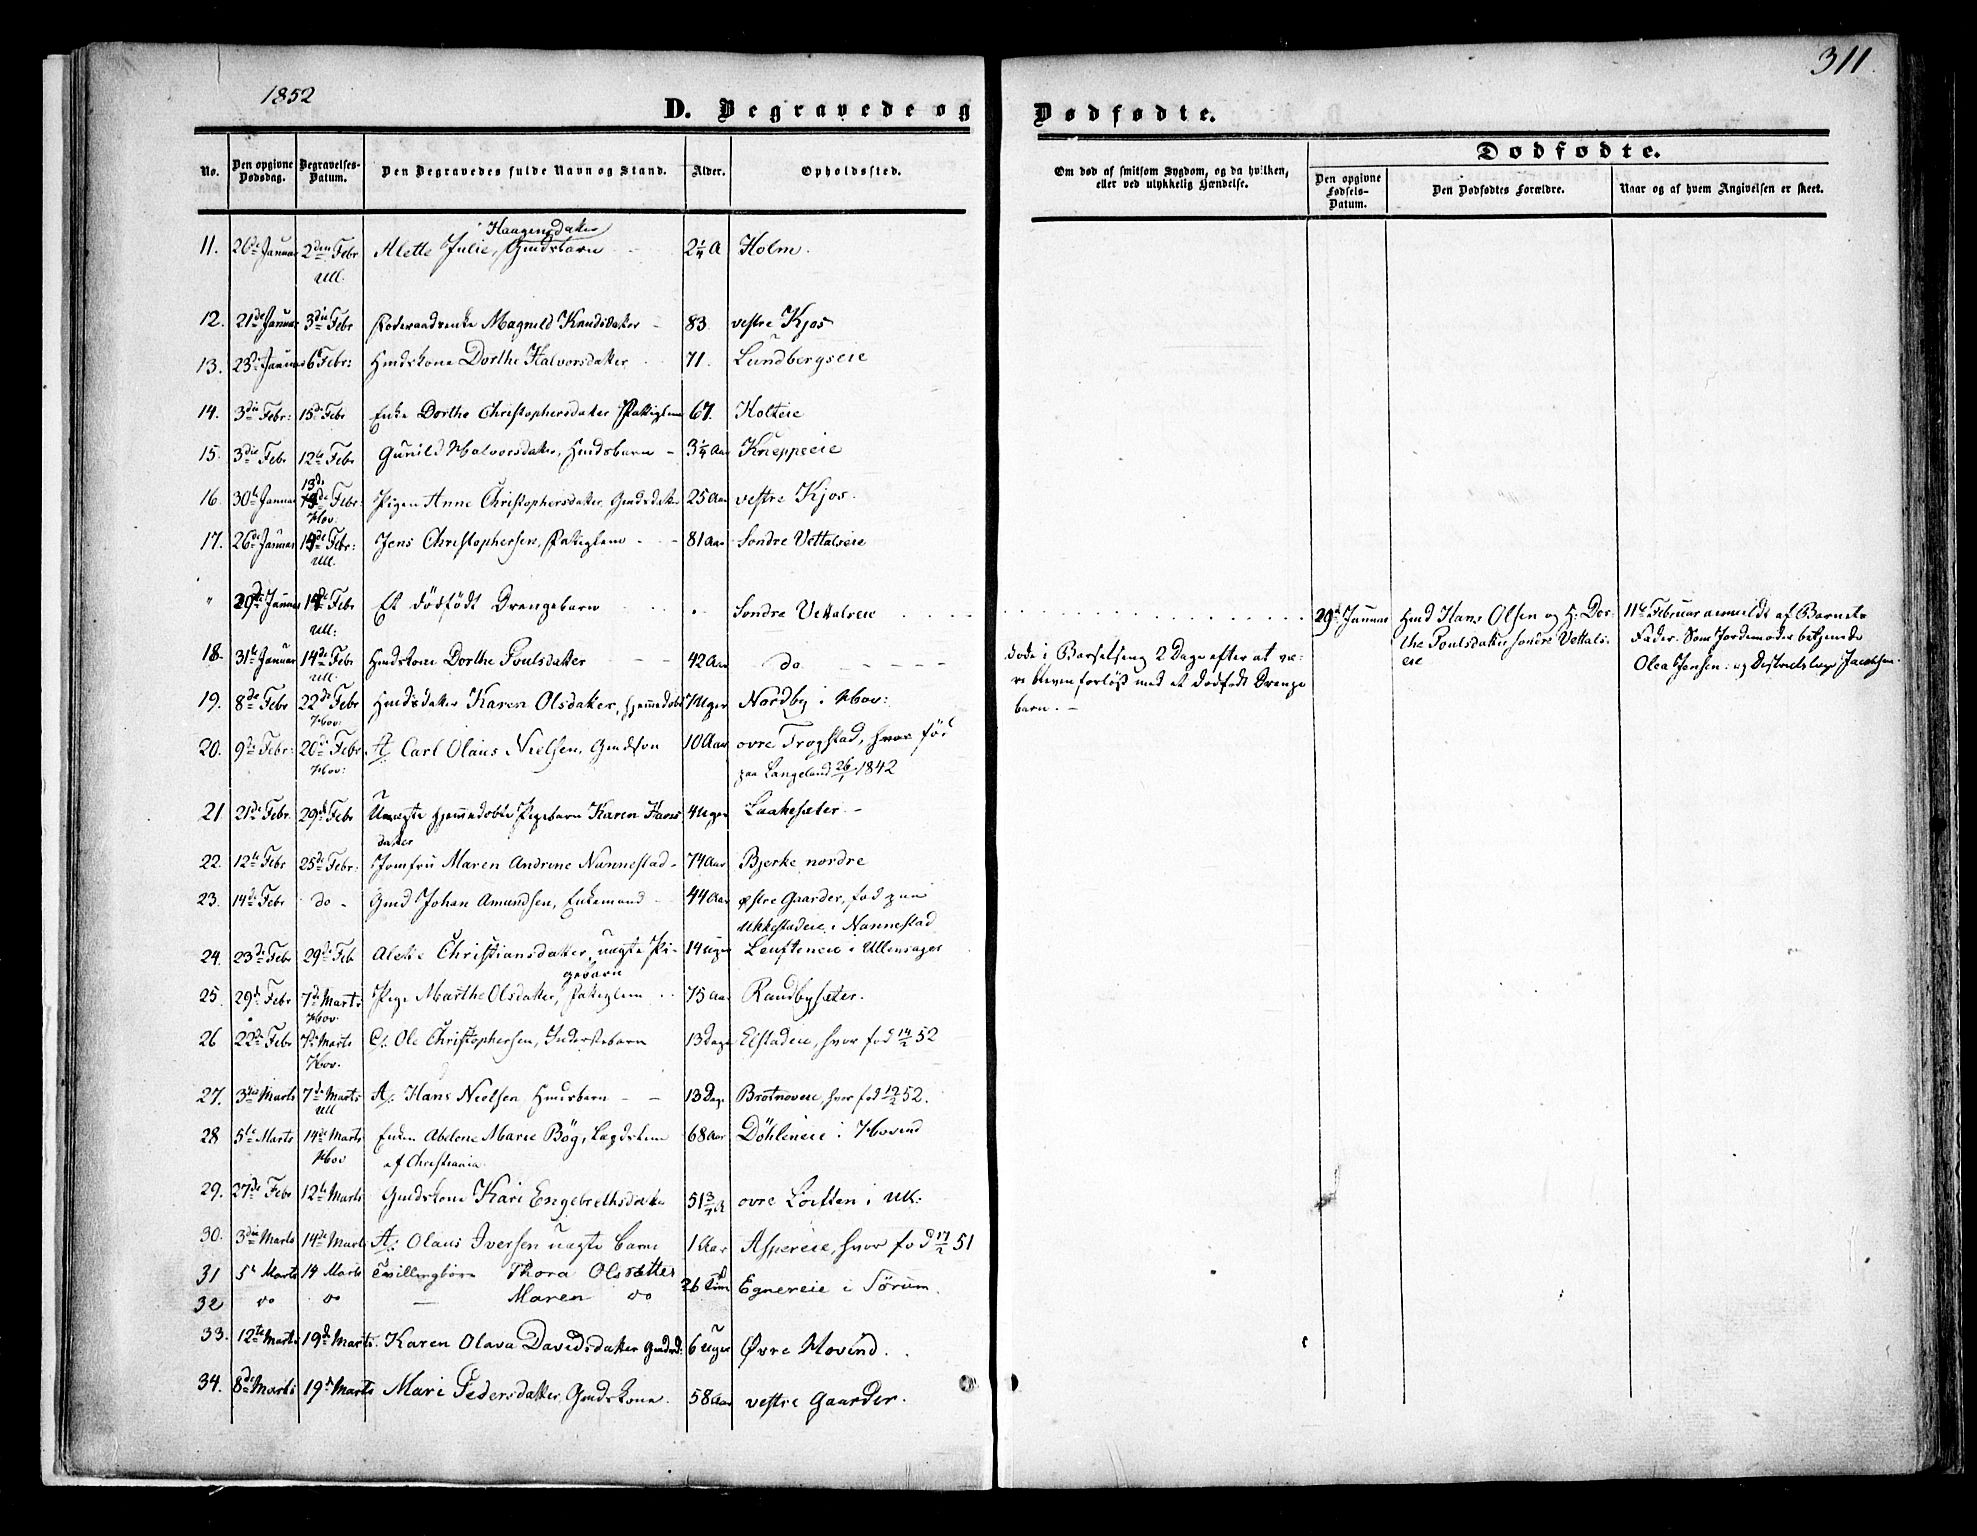 1852
311
D. Begravede og Dødfødte.
No.
Den opgivne Dødsdag.
Begravelses-Datum.
Den Begravedes fulde Navn og Stand.
Alder.
Opholdssted.
Om død af smitsom Sygdom, og da hvilken, eller ved ulykkelig Hændelse.
Dødfødte.
Den opgivne Fødsels-Datum.
Den Dødfødtes Forældre.
Naar og af hvem Angivelsen er skeet.
Haagensdatter
11. 26de Januar 2den Febr Alette Julie, Gmdsbarn 2¼ A Holm.
Ull.
12. 21de Januar 3die Febr Magnild Knudsdatter 83. vestre Kjos
13. 23de Januar 6te Febr: Hmdskone Dorthe Halvorsdatter 71. Lundbergseie
14. 3die Febr: 15de Febr Enke Dorthe Christophersdatter Fattiglem 67. Holteie
15. 3die Febr 12te Febr Gunild Halvorsdatter, Hmdsbarn - 3¼ Aar Kneppeie
16. 30te Januar 13de Febr: Pigen Anne Christophersdatter Gmdsdatter 25 Aar vestre Kjos.
Hov.
17. 26de Januar 14de Febr: Jens Christophersen, Fattiglem 81 Aar Søndre Vettalseie
Ull.
" 29de Januar 14de Febr Et dödfödt Drengebarn Søndre Vettalseie 29de Januar Hmd Hans Olsen og H: Dor- 11te Februar anmeldt af Barnets
Ull: the Poulsdatter søndre Vettals- Fader. Som Jordemoder betjente
18. 31te Januar 14de Febr Hmdskone Dorthe Poulsdatter 42 Aar do døde i Barselseng 2 Dage efter at væ- eie
Ull. Olea Jensen: og Districtslæge Jacobsen.
19. 8de Febr 22de Febr Hmdsdatter Karen Olsdatter, hjemmedøbt 7 Uger Nordby i Hov: re bleven forløst med et dødfødt Drenge
Hov: barn. -
20. 9de Febr: 20de Febr A/. Carl Olaus Nielsen, Gmdsøn 10 Aar øvre Trogstad, hvor fød
Hov: paa Langeland 26/1 1842
21. 21de Febr. 29de Febr Uægte hjemmedøbt Pigebarn Karen Hans 4 Uger Laakesæter -
datter
22. 12te Febr 25de Febr: Jomfru Maren Andrine Nannestad - 74 Aar Bjerke nordre
23. 14de Febr do - Gmd Johan Amundsen, Enkemand 44 Aar østre Gaarder, fød paa
Ukkestadeie i Nannestad
24. 23de Febr 29de Feb Aletie Christiansdatter, uægte Pi- 14 Uger Lauteneie i Ullensager
gebarn
25. 29de Febr 7de Marts Pige Marthe Olsdatter, Fattiglem 75 Aar Randbysæter.
Hov.
26 22de Febr 7de Marts C/. Ole Christophersen, Inderstebarn 13 Dage Elstadeie, hvor fød 14/2 52
Hov.
27. 3die Marts 7de Marts A/. Hans Nielsen Hmdsbarn - - 13 Dage Brotnoveie, hvor fød 19/2 52.
Ull
28 5te Marts 14de Marts Enken Abelone Marie Bög, Lagdslem 68 Aar Döhleneie i Hovind
Hov af Christiania
29. 27de Febr 12te Marts Gmdskone Kari Engebrethsdatter 51¾ A øvre Loutten i Ull:
30. 3die Marts 14de Marts A/. Olaus Iversen uægte barn 1 Aar Aspereie, hvor fød 17/2 51
31 5te Marts 14 Marts Tvillingbörn Thora Olsdatter 26 Timer Egnereie i Sørum.
32 do do — Maren do
33. 12te Marts 19de Marts. Karen Olava Davidsdatter Gmdsd: 6 Uger Øvre Hovind.
34. 8de Marts 19de Marts Mari Pedersdatter Gmdskone. 58 Aar vestre Gaarder.